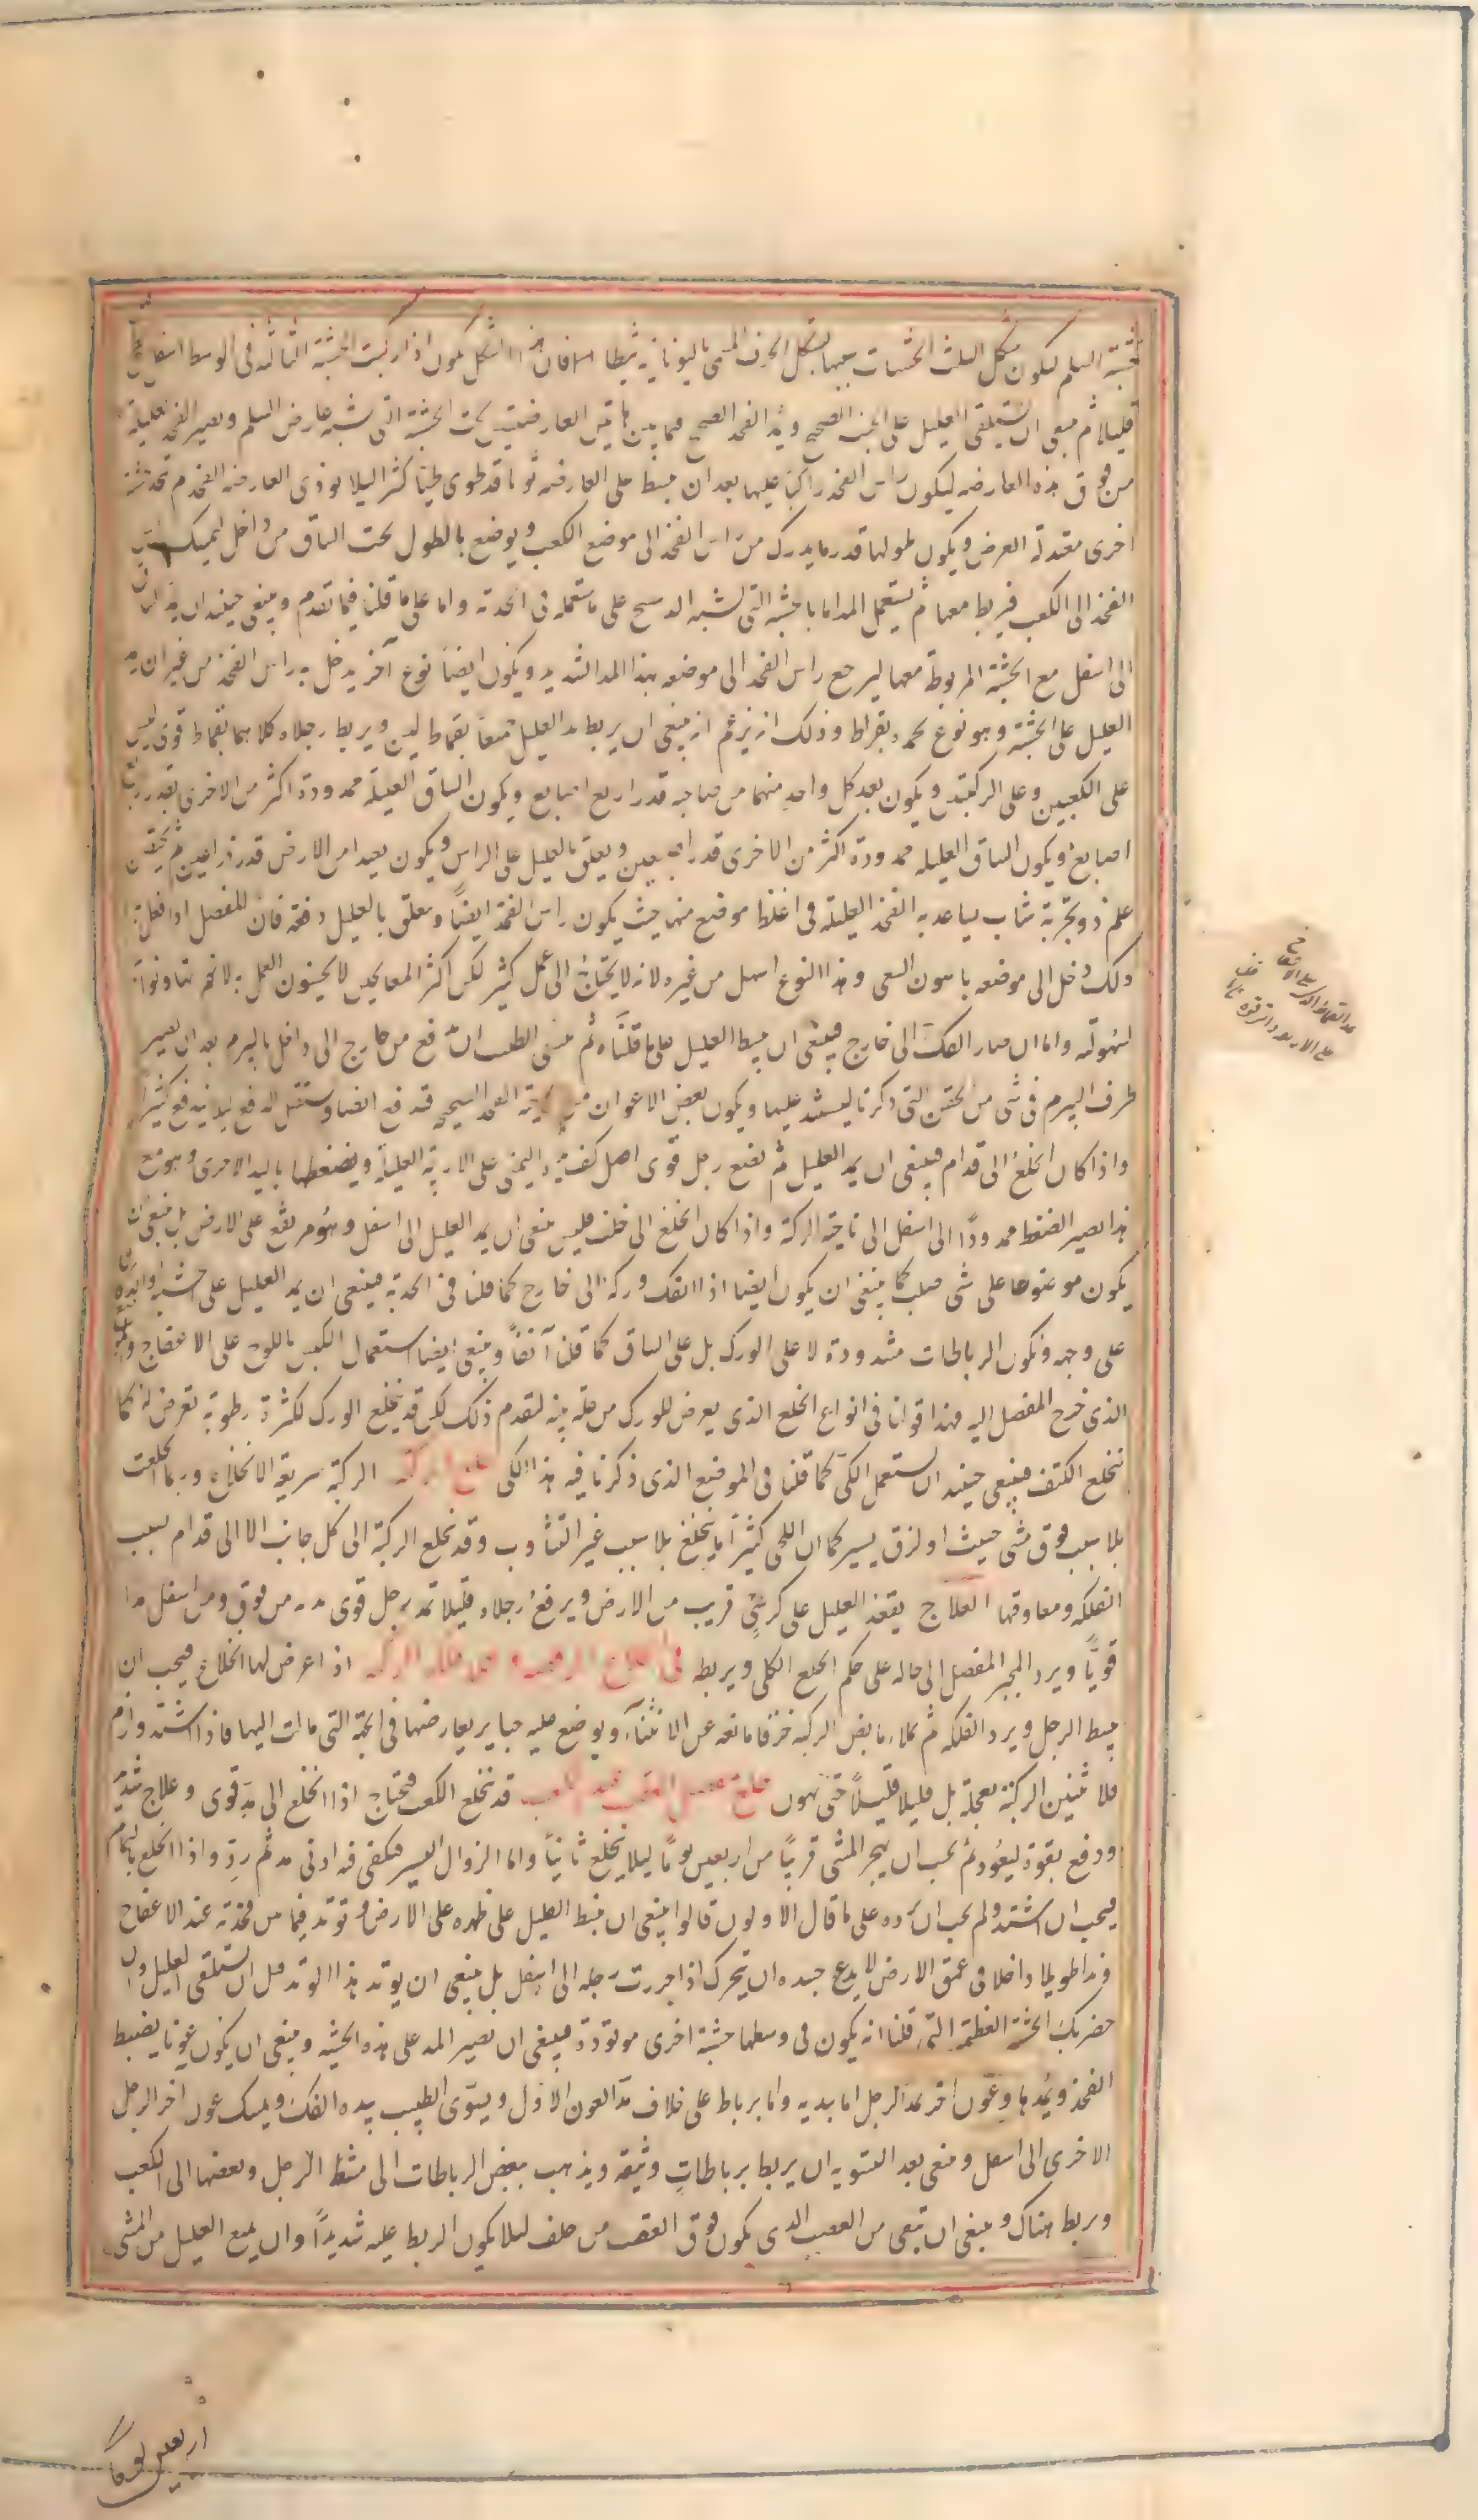 خشبة السلم ليكون شكل الثلث الخشبات جميعها بشكل الحرف المسمى باليونانية ثيطا فان هذا الشكل يكون اذا ركبت الخشبة الثالثة فى الوسط اسفل
قليلا ثم ينبغى ان يستلقى العليل على الجنب الصحيح ويمد الفخذ الصحيح فيما بين هاتين العارضتين تحت الخشبة التى تشبه عارض السلم ويصير الفخذ العليلة
من فوق هذه العارضه ليكون راس الفخذ راكبا عليها بعد ان يبسط على العارضه ثوبا قد طوى طيا كثيرا ليلا يوذى العارضه الفخذ ثم تتخذ خشبة
اخرى معتدلة العرض ويكون طولها قدر ما يدرك من راس الفخذ الى موضع الكعب ويوضع بالطول تحت الساق من داخل ليمسك راس
الفخذ الى الكعب فيربط معها ثم يستعمل المد اما بالخشبة التى تشبه الدستج على ما تستعمله فى الحدبة واما على ما قلنا فيما تقدم وينبغى حينئذ ان يمد الساق
الى اسفل مع الخشبة المربوطة معها ليرجع راس الفخذ الى موضعه بهذا المد الشديد ويكون ايضا نوع آخر يدخل به راس الفخذ من غير ان يمد
العليل على الخشبة وهو نوع يحمده بقراط وذلك انه يزعم انه ينبغى ان يربط يد العليل جميعا بقماط لين ويربط رجلاه كلاهما بقماط قوى لين
على الكعبين وعلى الركبتين ويكون بعد كل واحد منهما من صاحبه قدر اربع اصابع ويكون الساق العليلة ممدودة اكثر من الاخرى بقدر اربع
اصابع ويكون الساق العليله ممدودة اكثر من الاخرى قدر اصبعين ويعلق بالعليل على الراس ويكون بعيدا من الارض قدر ذراعين ثم يحتضن
علم ذو تجربة شاب بساعديه الفخذ العليلة فى اغلظ موضع منها حيث يكون راس الفخذ ايضا ويعلق بالعليل دفعه فان المفصل اذا فعل به
ذلك دخل الى موضعه باهون السعى وهذا النوع اسهل من غيره لانه لا يحتاج الى عمل كثير لكن اكثر المعالجين لا يحسنون العمل به لانهم تهاونوا به
لسهولته واما ان صار الفك الى خارج فينبغى ان يبسط العليل على ما قلناه ثم ينبغى للطبيب ان يدفع من خارج الى داخل بالبيرم بعد ان يصير
طرف البيرم فى شى من الحفرتين التى ذكرنا ليستند عليها ويكون بعض الاعوان من ناحية الفخذ الصحيحه قد دفع ايضا ويستقبل الدفع ليلا يندفع كثيرا
واذا كان الخلع الى قدام فينبغى ان يمد العليل ثم يضع رجل قوى اصل كف يده اليمنى على الاربية العليلة ويضغطها باليد الاخرى وهو مع
هذا يصير الضغط ممدودا الى اسفل الى ناحية الركبة واذا كان الخلع الى خلف فليس ينبغى ان يمد العليل الى اسفل وهو مرتفع على الارض بل ينبغى ان
يكون موضوعا على شى صلب كما ينبغى ان يكون ايضا اذا انفك وركه الى خارج كما قلنا فى الحدبة فينبغى ان يمد العليل على خشبة او
على وجهه وتكون الرباطات مشدودة لا على الورك بل على الساق كما قلنا آنفا وينبغى ايضا استعمال الكبس باللوح على الاعفاج
الذى خرج المفصل اليه فهذا قولنا فى انواع الخلع الذى يعرض للورك من علة بينه لتقدم ذلك لكن قد ينخلع الورك لكثرة رطوبة تعرض له كما
ينخلع الكتف فينبغى حينئذ ان يستعمل الكى كما قلنا فى الموضع الذى ذكرنا فيه هذا الكى خلع الركبه الركبة سريعة الانخلاع وربما انخلعت
بلا سبب فوق مشى حيث او لزق يسير كما ان اللحى كثيرا ما ينخلع بلا سبب غير التثاوب وقد تخلع الركبة الى كل جانب الا الى قدام لسبب
الفلكه ومعاوقتها العلاج يقعد العليل على كرسى قريب من الارض ويرفع رجلاه قليلا ثم رجل قوى يمده من فوق ومن اسفل مدا
قويا ويرد المجبر المفصل الى حاله على حكم الخلع الكلى ويربطه اذا عرض لها انخلاع فيجب ان
يبسط الرجل ويرد الفلكه ثم يملا مابض الركبه خرقا مانعه عن الانثناء ويوضع عليه جباير يعارضها فى الجهة التى مالت اليها فاذا اشتد ولزم
فلا تثنين الركبة بعجلة بل قليلا قليلا حتى تهون قد ينخلع الكعب فيحتاج اذا انخلع الى مد قوى وعلاج شديد
ودفع بقوة ليعود ثم يجب ان يهجر المشى قريبا من اربعين يوما ليلا ينخلع ثانيا واما الزوال اليسير فيكفى فيه ادنى مد ثم رد واذا انخلع بالتمام
فيجب ان اشتد ولم يجب ان يمده على ما قال الاولون قالوا ينبغى ان يبسط العليل على ظهره على الارض ويوتد فيما بين فخذيه عند الاعفاج
وتدا طويلا داخلا فى عمق الارض لا يدع جسده ان يتحرك اذا جررت رجله الى اسفل بل ينبغى ان يوتد هذا الوتد قبل ان يستلقى العليل وان
حضرتك الخشبة العظمة التى قلنا انه يكون فى وسطها خشبة اخرى موتودة فينبغى ان تصير المد على هذه الخشبه وينبغى ان يكون عونا يضبط
الفخذ ويمدها وعون اخر يمد الرجل اما بيديه واما برباط على خلاف مد العون الاول ويسوى الطبيب بيده الفك ويمسك عون اخر الرجل
الاخرى الى اسفل وينبغى بعد التسويه ان يربط برباطات وثيقه ويذهب ببعض الرباطات الى مشط الرجل وبعضها الى الكعب
وربط هناك وينبغى ان تتقى من العصب الذى يكون فوق العقب من خلف ليلا يكون الربط عليه شديدا وان يمنع العليل من المشى
اربعين يوما